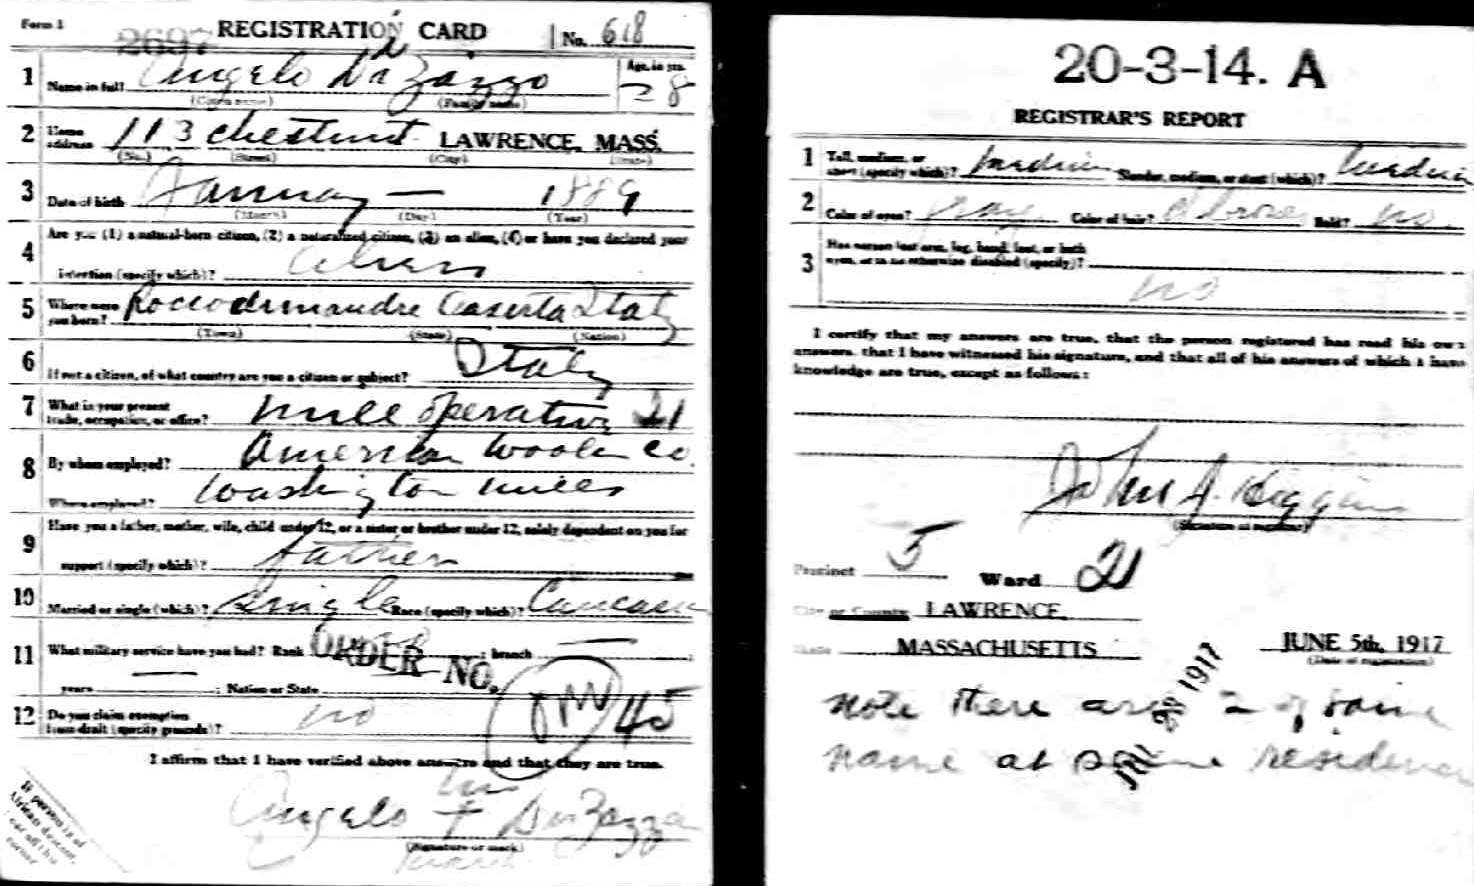 Form 1
2697 REGISTRATION CARD No. 618
1 Name in full Angelo Di Zazzo Age, in yrs. 28
(Given name) (Family name)
2 Home address 113 Chestnut LAWRENCE, MASS.
(No.) (Street) (City) (State)
3 Date of birth January — 1889
(Month) (Day) (Year)
4 Are you (1) a natural-born citizen, (2) a naturalized citizen, (3) an alien, (4) or have you declared your
intention (specify which)? alien
5 Where were you born? Roccodimandre Caserta Italy
(Town) (State) (Nation)
6 If not a citizen, of what country are you a citizen or subject? Italy
7 What is your present trade, occupation, or office? Mill operative 21
8 By whom employed? American Woolen Co.
Where employed? Washington Mills
9 Have you a father, mother, wife, child under 12, or a sister or brother under 12, solely dependent on you for
support (specify which)? father
10 Married or single (which)? Single Race (specify which)? Caucasian
11 What military service have you had? Rank ; branch — ;
ORDER NO.
years — ; Nation or State
45
12 Do you claim exemption from draft (specify grounds)? no
I affirm that I have verified above answers and that they are true.
his
Angelo + Di Zazzo
(Signature or mark)
mark
If person is of
African descent,
tear off this
corner
20-3-14. A
REGISTRAR'S REPORT
1 Tall, medium, or short (specify which)? medium Slender, medium, or stout (which)? medium
2 Color of eyes? gray Color of hair? Bald? no
3 Has person lost arm, leg, hand, foot, or both
eyes, or is he otherwise disabled (specify)?
no
I certify that my answers are true, that the person registered has read his own
answers, that I have witnessed his signature, and that all of his answers of which I have
knowledge are true, except as follows:
John J. Higgins
(Signature of registrar)
Precinct 5 Ward 21
City or County LAWRENCE,
State MASSACHUSETTS JUNE 5th, 1917
(Date of registration)
JUL 28 1917
Note there are 2 of same
name at same residence